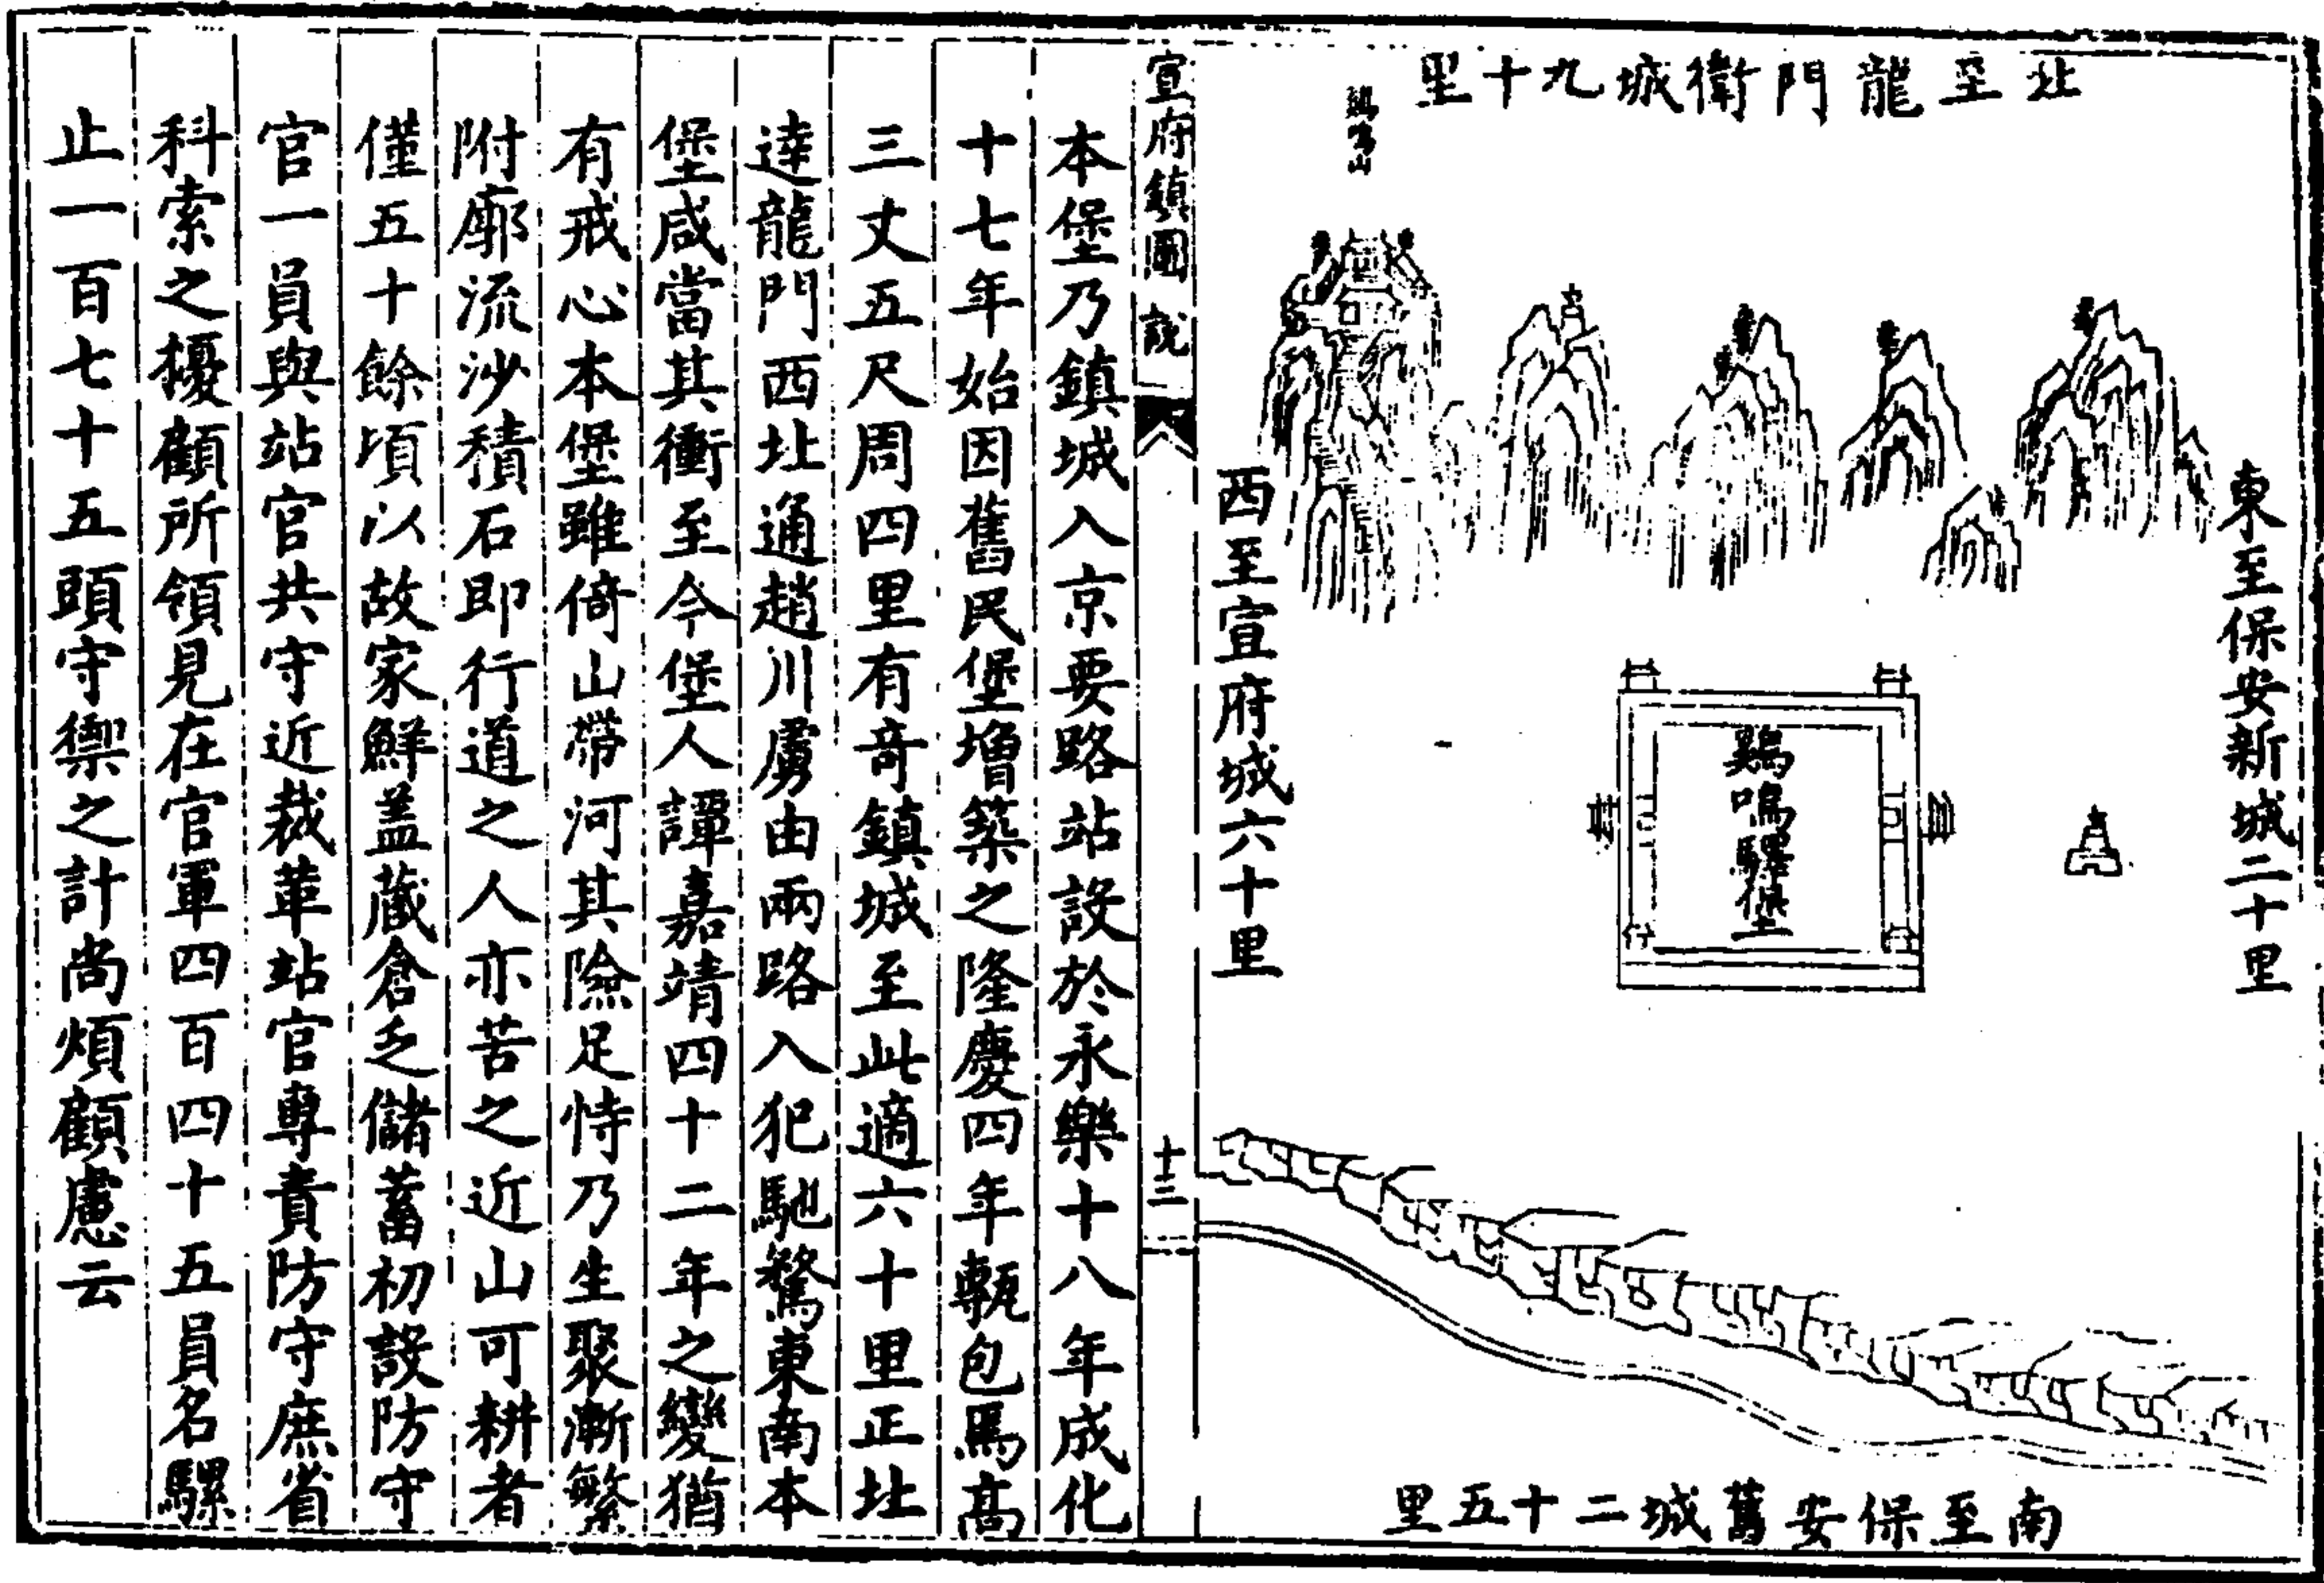 北至龍門衛城九十里
鷄鳴山
東至保安新城二十里
鷄鳴驛堡
西至宣府城六十里
南至保安舊城二十五里
宣府鎮圖說
十三
本堡乃鎮城入京要路站設於永樂十八年成化
十七年始因舊民堡增築之隆慶四年甎包焉高
三丈五尺周四里有奇鎮城至此適六十里正北
達龍門西北通趙川虜由兩路入犯馳騖東南本
堡咸當其衝至今堡人譚嘉靖四十二年之變猶
有戒心本堡雖倚山帶河其險足恃乃生聚漸繁
附廓流沙積石即行道之人亦苦之近山可耕者
僅五十餘頃以故家鮮蓋藏倉乏儲蓄初設防守
官一員與站官共守近裁革站官專責防守庶省
科索之擾顧所領見在官軍四百四十五員名騾
止一百七十五頭守禦之計尚煩顧慮云